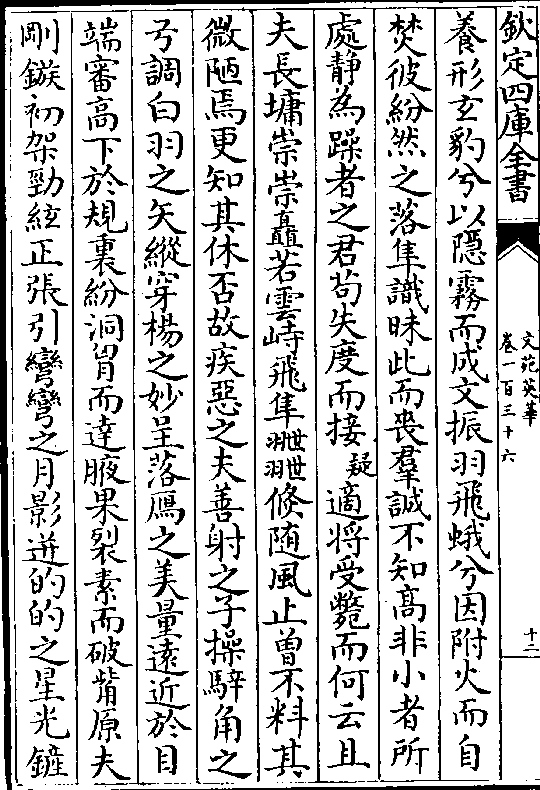 欽定四庫全書
文苑英華
卷一百三十六
十二
養形玄豹兮以隱霧而成文振羽飛蛾兮因附火而自
焚彼紛然之落隼識昧此而喪羣誠不知髙非小者所
處静為躁者之君茍失度而接疑適將受斃而何云且
夫長墉崇崇矗若雲峙飛隼翐翐倐随風止曾不料其
微陋焉更知其休否故疾惡之夫善射之子操騂角之
弓調白羽之矢縱穿楊之妙呈落鴈之美量遠近於目
端審高下於規裏紛洞胷而達腋果裂素而破觜原夫
剛鏃初架勁絃正張引彎彎之月影迸的的之星光鏟